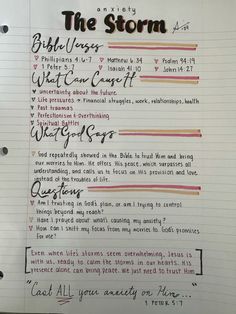 anxiety
The Storm
Bible Verses
Phillipians 4:6-7
Matthew 6:34
Psalm 94:19
1 Peter 5:7
Isaiah 41:10
John 14:27
What Can Cause It
uncertainty about the future
Life pressures → Financial struggles, work, relationships, health
Past traumas
Perfectionism & Overthinking
Spiritual Battles
What God Says
God repeatedly showed in the Bible to trust Him and bring
our worries to Him. He offers His peace, which surpasses all
understanding, and calls us to focus on His provision and love
instead of the troubles of life.
Questions
Am I trusting in God's plan, or am I trying to control
things beyond my reach?
Have I prayed about what's causing my anxiety?
How can I shift my focus from my worries to God's promises
for me?
Even when life's storms seem overwhelming, Jesus is
with us, ready to calm the storms in our hearts. His
presence alone can bring peace. We just need to trust Him
"Cast ALL your anxiety on Him..."
1 PETER 5:7